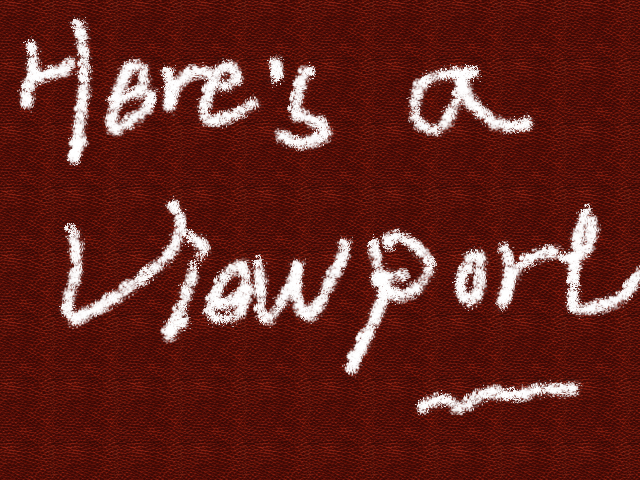 Here's a
Viewport